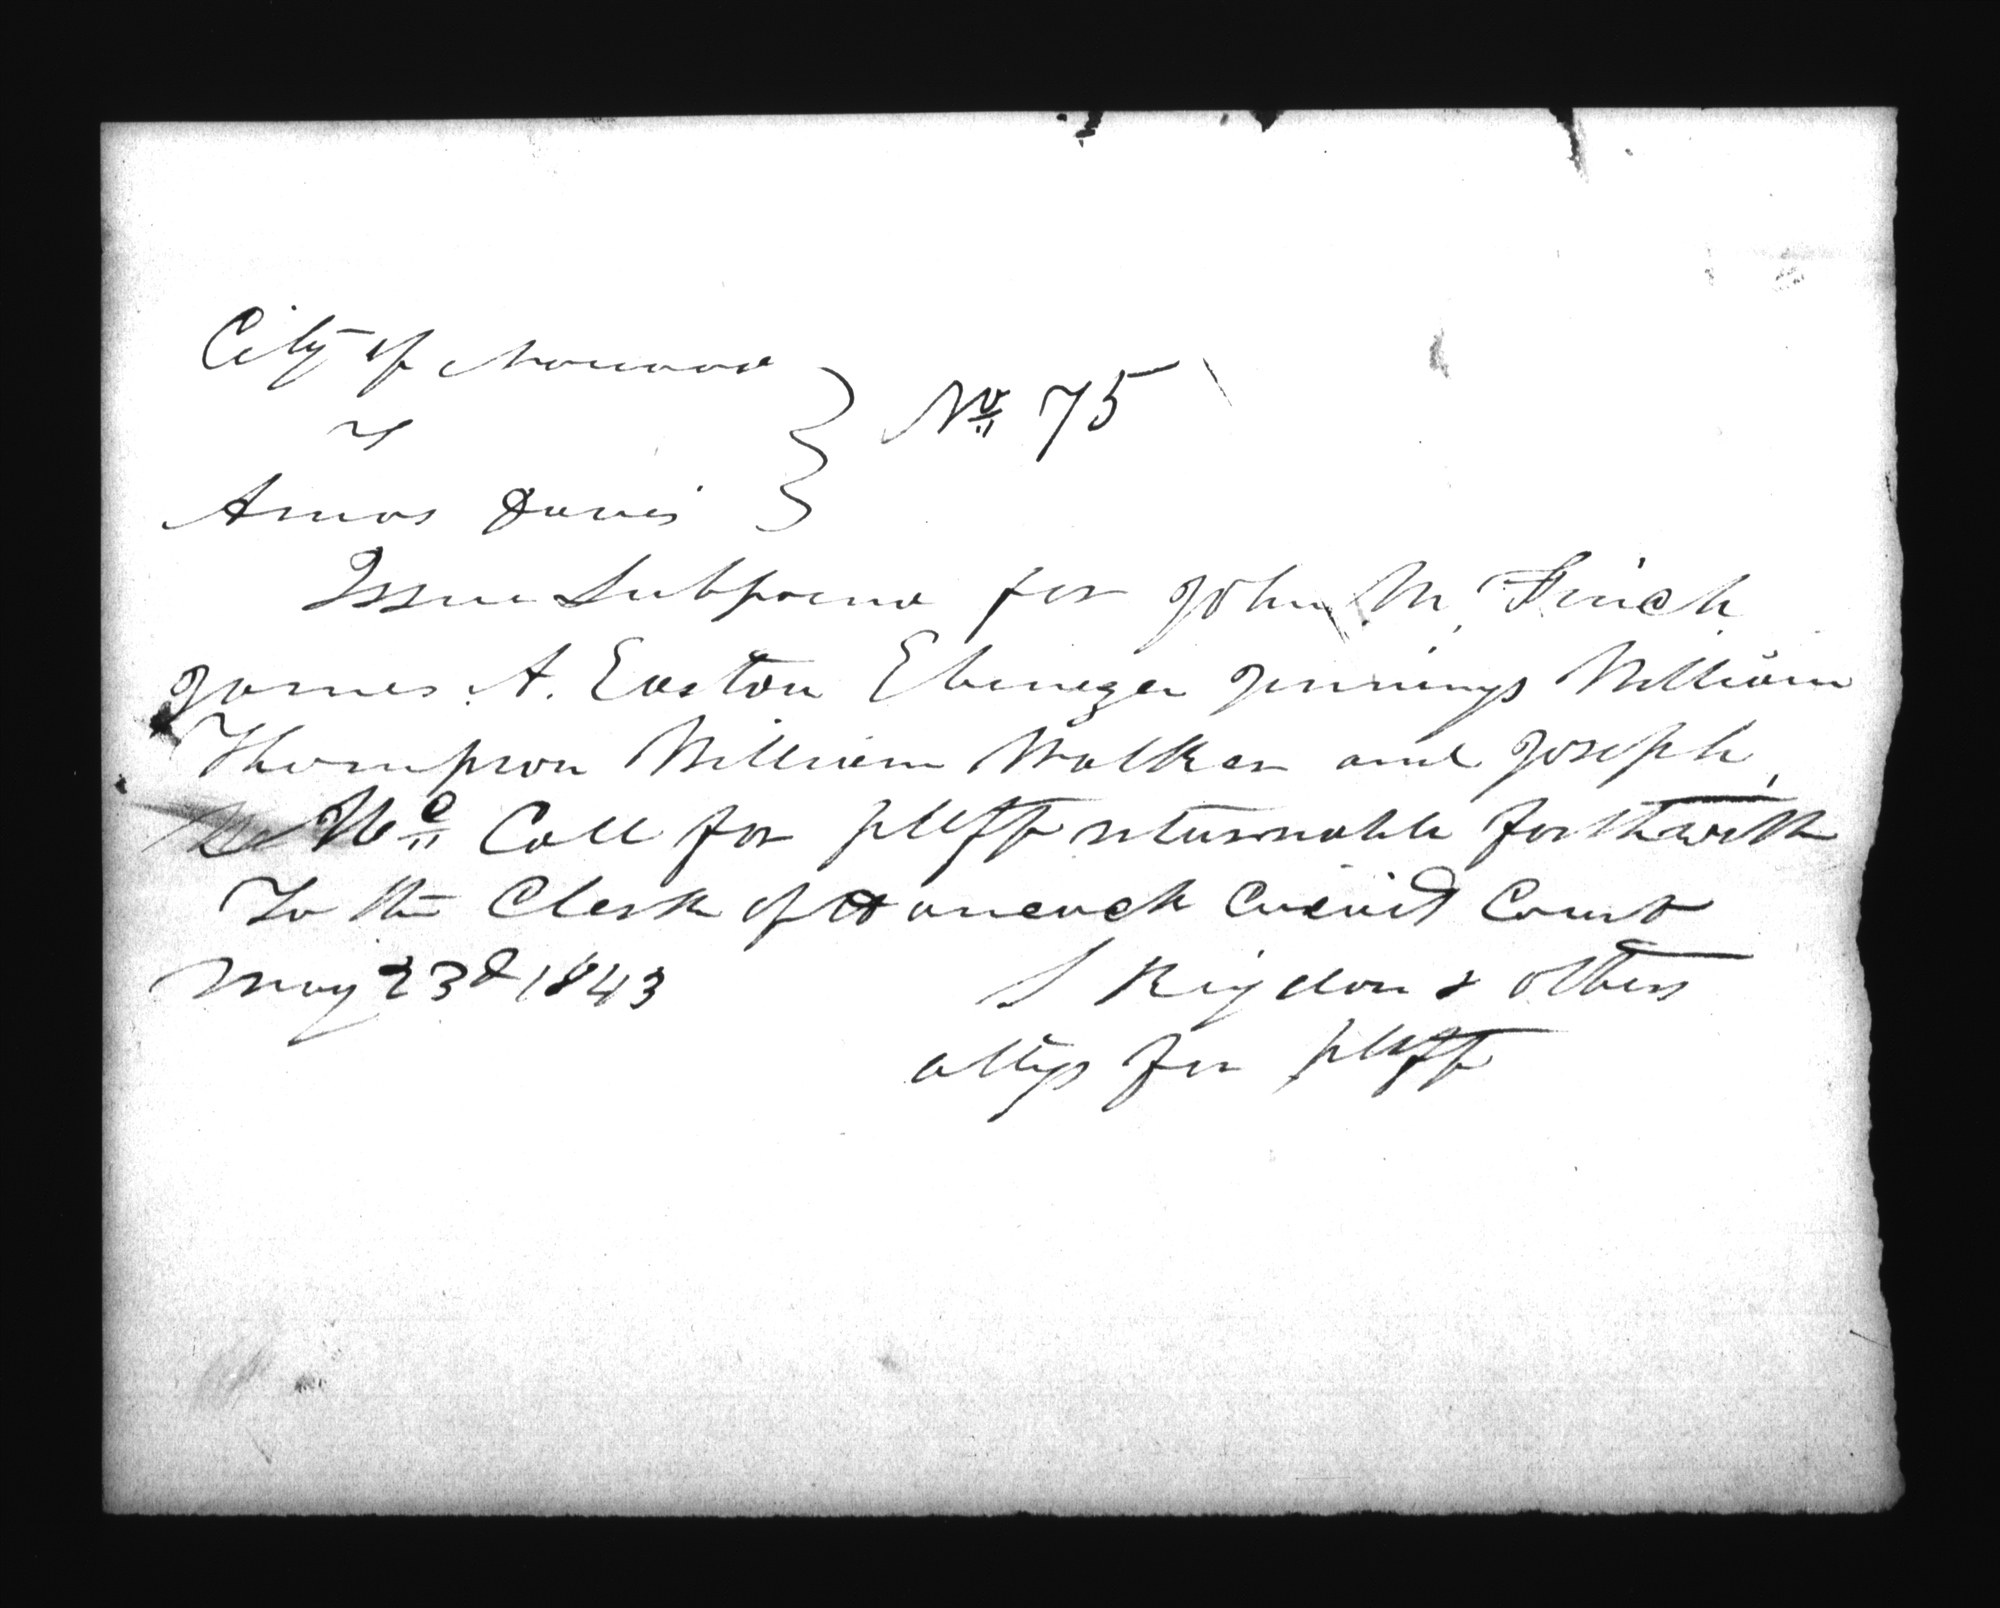 City of Nauvoo
vs
Amos Davis
} No 75
Issue Subpoena for John M. Finch
James A. Easton Ebenezer Jennings William
Thompson William Walker and Joseph
Mc Call for pltff returnable forthwith
To the Clerk of Hancock Circuit Court
May 23d 1843
S Rigdon & others
attys for pltff